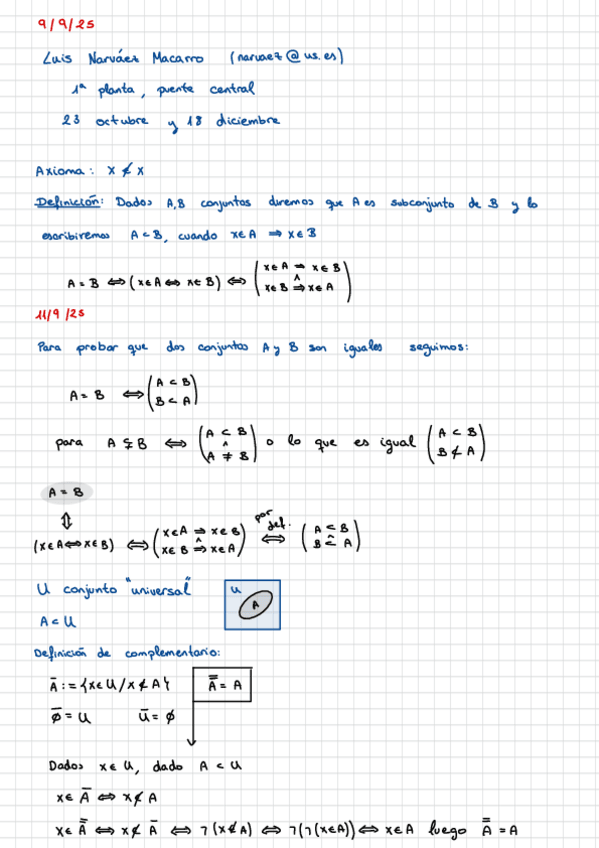 9/9/25
Luis Narváez Macarro (narvaez@us.es)
1ª planta, puente central
23 octubre y 18 diciembre
Axioma: x ∉ x
Definición: Dados A,B conjuntos diremos que A es subconjunto de B y lo
escribiremos A ⊂ B, cuando x∈A ⇒ x∈B
A = B ⇔ (x∈A ⇔ x∈B) ⇔ (x∈A ⇒ x∈B ∧ x∈B ⇒ x∈A)
11/9/25
Para probar que dos conjuntos A y B son iguales seguimos:
A = B ⇔ (A ⊂ B B ⊂ A)
para A ⊊ B ⇔ (A ⊂ B ∧ A ≠ B) o lo que es igual (A ⊂ B B ⊄ A)
A = B
⇕
(x∈A ⇔ x∈B) ⇔ (x∈A ⇒ x∈B ∧ x∈B ⇒ x∈A) por def. ⇔ (A ⊂ B ∧ B ⊂ A)
U conjunto "universal"
U
A
A ⊂ U
Definición de complementario:
A̅ := {x∈U / x∉A}
A̿ = A
∅̅ = U U̅ = ∅
Dados x∈U, dado A ⊂ U
x∈A̅ ⇔ x∉A
x∈A̿ ⇔ x∉A̅ ⇔ ¬(x∉A) ⇔ ¬(¬(x∈A)) ⇔ x∈A luego A̿ = A